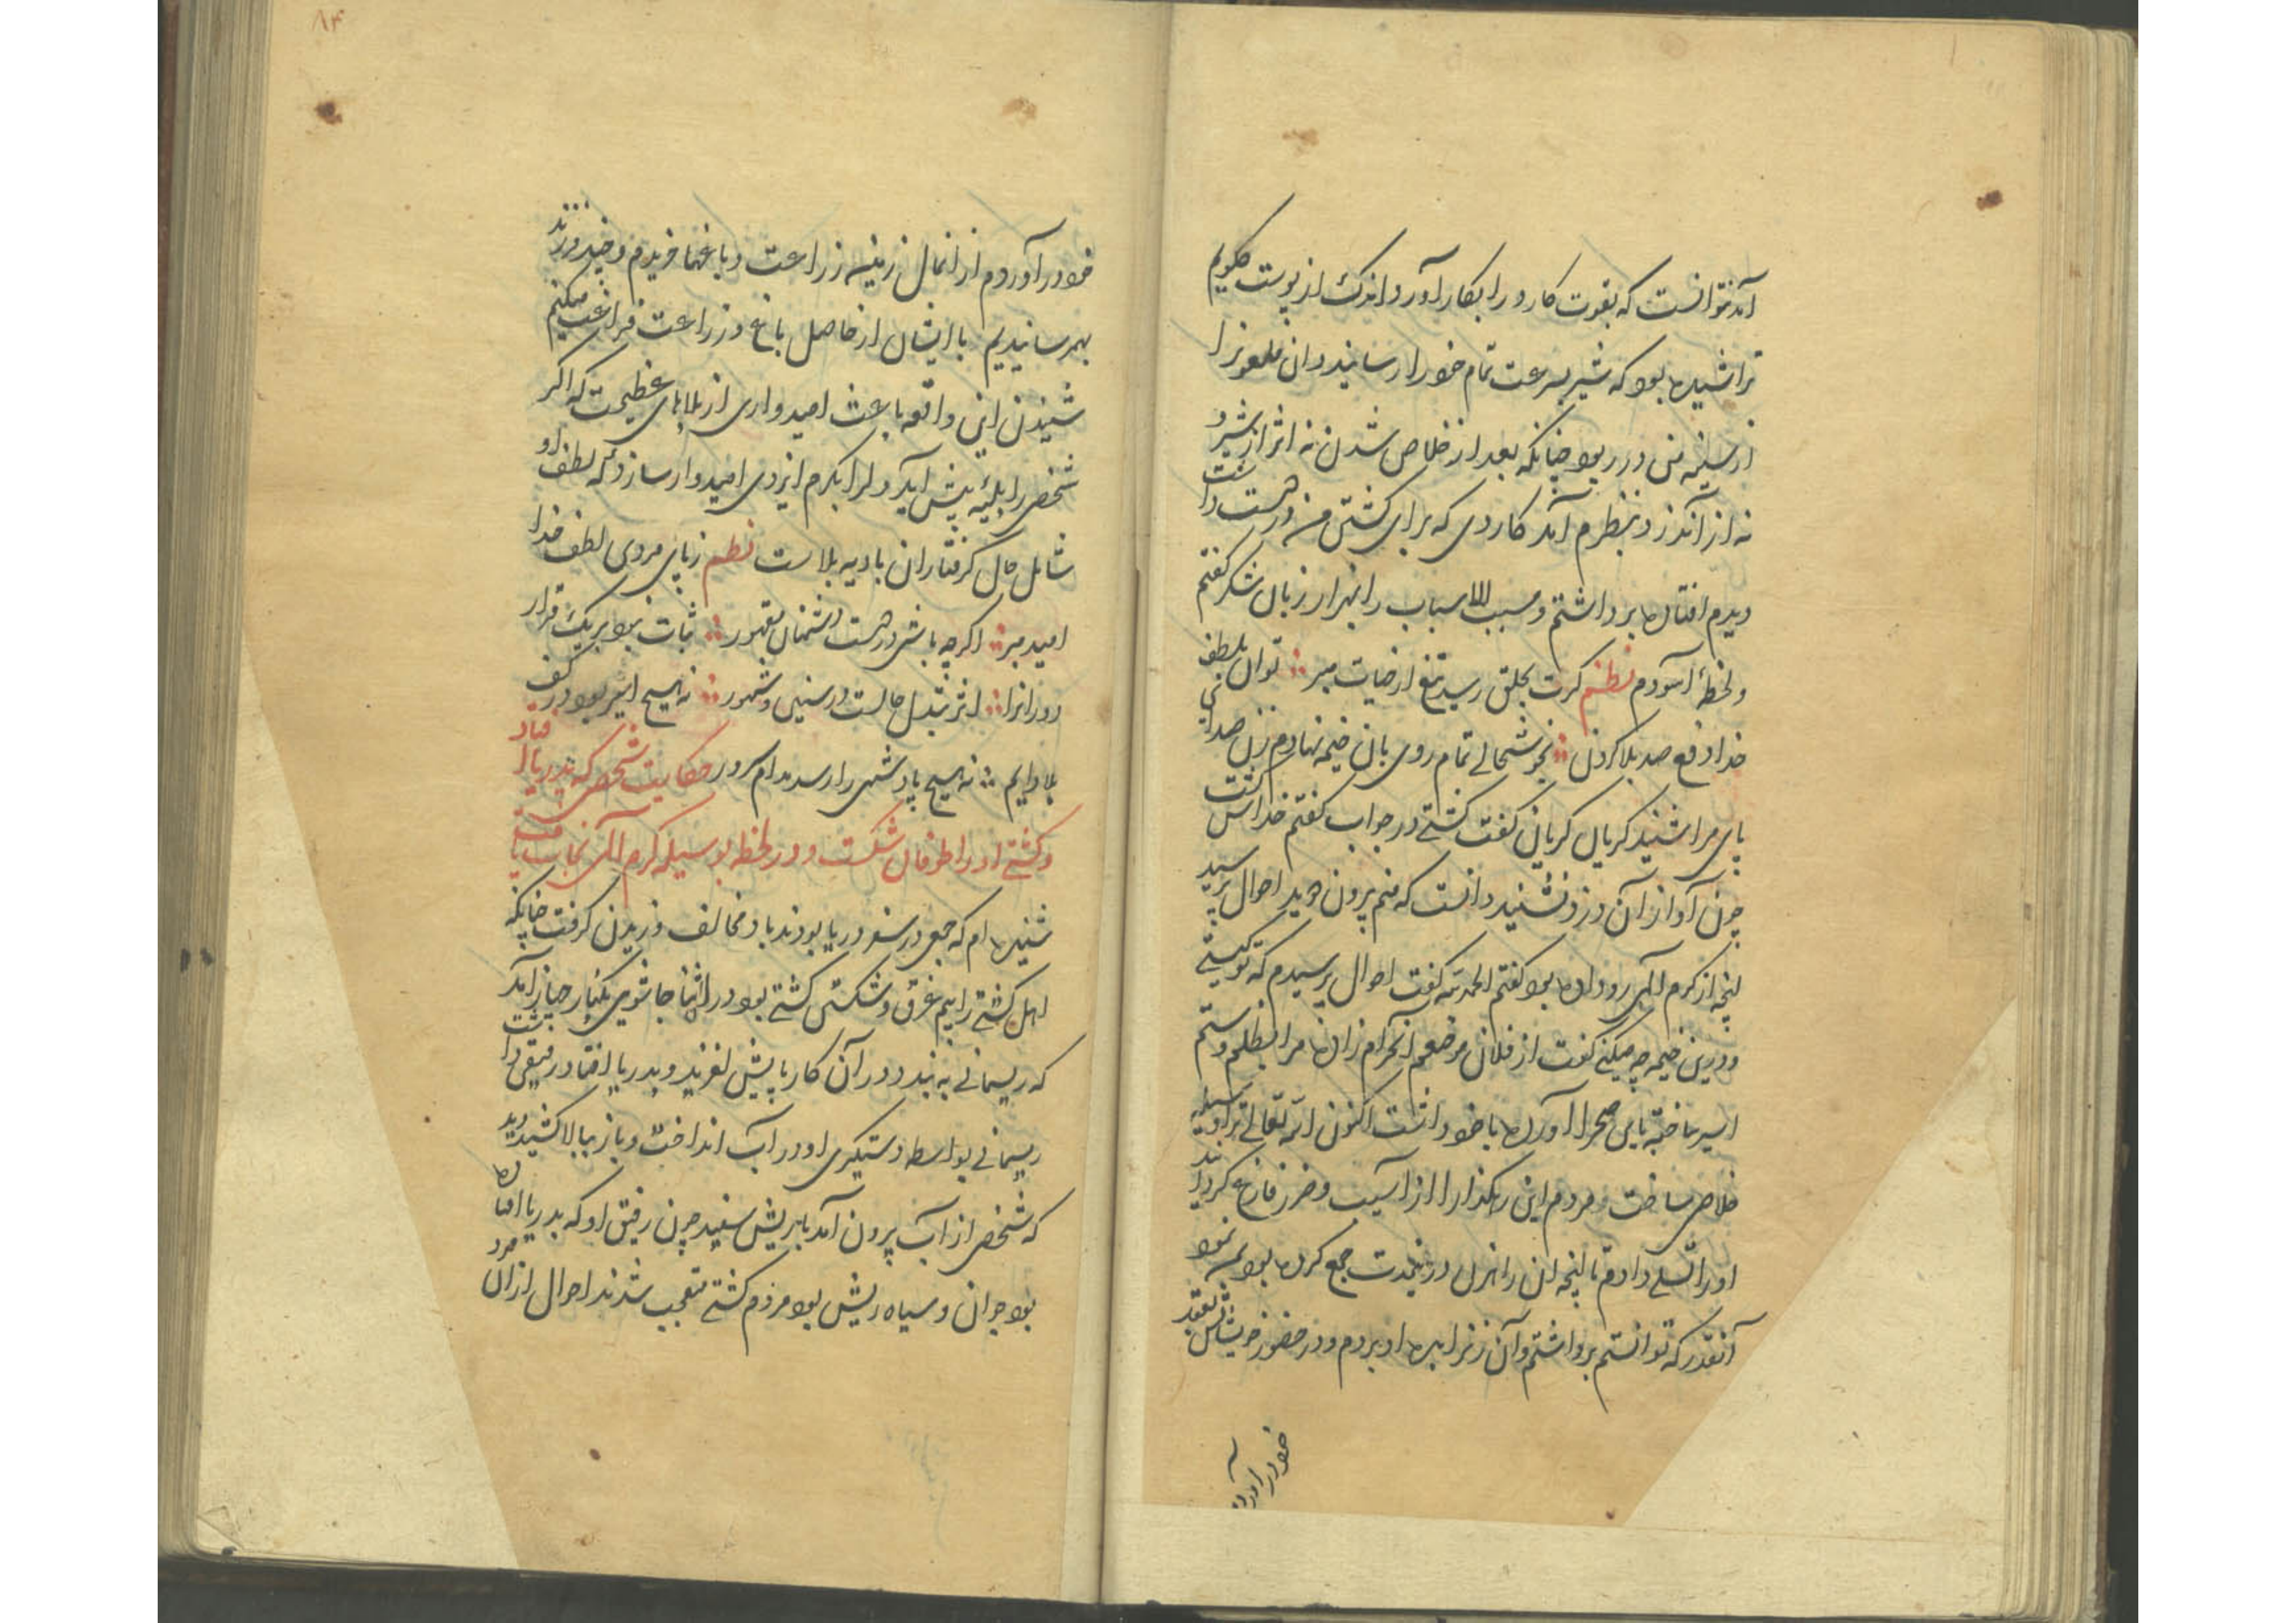 آمد نتوانست که بقوت کارد را بکار آورد اندک از پوست حلقویم
تراشیده بود که شیر بسرعت تمام خود را رسانید و ان ملعونرا
از سینه من در ربود چنانکه بعد از خلاص شدن نه اثر از شیر و
نه از آن دزد بنظرم آمد کاردی که برای کشتن من در دست داشت
دیدم افتاده برداشتم و مسبب الاسباب را بهزار زبان شکر گفتم
و لحظهٔ آسودم نظم کرت بحلق رسد تیغ از حیات مبر ؞ توان بلطف
خدا دفع صد بلا کردن ؞ بخوشحالی تمام روی بان خیمه نهادم زن صدای
پای مرا شنید کریان کریان کفت کشتی در جواب کفتم خداش کشت
چون آواز آن دزد نشنید دانست که منم برون دوید احوال پرسید
انچه از کرم الهی رو داده بود کفتم الحمد لله کفت احوال پرسیدم که تو کیستی
و درین خیمه چه میکنی کفت از فلان موضعم آن حرام زاده مرا بظلم و ستم
اسیر ساخته باین صحرا آورده با خود داشت اکنون الله تعالی ترا وسیله
خلاص ساخت و مردم این رهکذار را از آسیب و ضرر فارغ کردانید
او را تسلی دادم تا انچه ان راهزن در این مدت جمع کرده بود بمن نمود
آنقدر که توانستم برداشتم و آن زنرا همراه او بردم و در حضور خویشانش بعقد
خود در آورد
خود در آوردم از ان مال زمین زراعت و باغها خریدم و چند فرزند
بهمرسانیدیم با ایشان از حاصل باغ و زراعت فراغت میکنم
شنیدن این واقعه باعث امیدواری از بلاهای عظیمست که اکر
شخص را بلیهٔ پیش آید دلرا بکرم ایزدی امیدوار سازد که لطف او
شامل حال کرفتاران بادیه بلاست نظم ز پای مردی لطف خدا
امید مبر ؞ اکرچه باشی در دست دشمنان مقهور ؞ ثبات نبود بر یک قرار
دورانرا ؞ اثر تبدل حالست در سنین و شهور ؞ نه هیچ اسیر بود در کف
بلا دایم ؞ نه هیچ پادشهی را رسد مدام سرور حکایت شخصی که بدریا افتاد
و کشتی او را طوفان شکست و در لحظه بوسیله کرم الهی نجات یافت
شنیده ام که جمعی در سفر دریا بودند باد مخالف وزیدن کرفت چنانکه
اهل کشتی را بیم غرق و شکستن کشتی بود در اثنا جاشوی بکنار جهاز آمد
که ریسمانی به بندد در آن کار پایش لغزید و بدریا افتاد رفیقی داشت
ریسمانی بواسطه دستکیری او در آب انداخت و باز ببالا کشید دید
که شخصی از آب برون آمد با ریش سفید چون رفیق او که بدریا افتاده
بود جوان و سیاه ریش بود مردم کشتی متعجب شدند احوال از ان مرد
۸۴